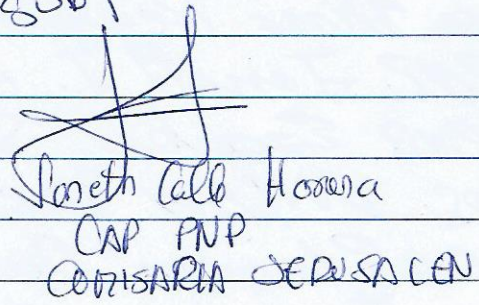 Janeth Calle Herrera
CAP PNP
COMISARIA JERUSALEN